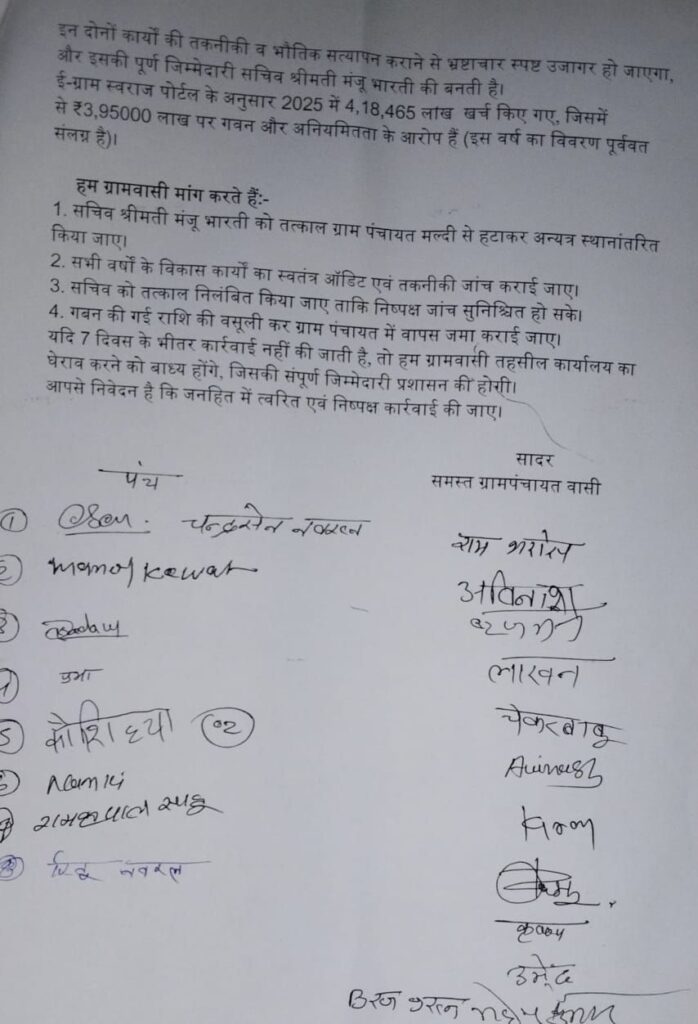 इन दोनों कार्यों की तकनीकी व भौतिक सत्यापन कराने से भ्रष्टाचार स्पष्ट उजागर हो जाएगा,
और इसकी पूर्ण जिम्मेदारी सचिव श्रीमती मंजू भारती की बनती है।
ई-ग्राम स्वराज पोर्टल के अनुसार 2025 में 4,18,465 लाख खर्च किए गए, जिसमें
से ₹3,95000 लाख पर गबन और अनियमितता के आरोप हैं (इस वर्ष का विवरण पूर्ववत
संलग्न है)।
हम ग्रामवासी मांग करते हैं:-
1. सचिव श्रीमती मंजू भारती को तत्काल ग्राम पंचायत मल्दी से हटाकर अन्यत्र स्थानांतरित
किया जाए।
2. सभी वर्षों के विकास कार्यों का स्वतंत्र ऑडिट एवं तकनीकी जांच कराई जाए।
3. सचिव को तत्काल निलंबित किया जाए ताकि निष्पक्ष जांच सुनिश्चित हो सके।
4. गबन की गई राशि की वसूली कर ग्राम पंचायत में वापस जमा कराई जाए।
यदि 7 दिवस के भीतर कार्रवाई नहीं की जाती है, तो हम ग्रामवासी तहसील कार्यालय का
घेराव करने को बाध्य होंगे, जिसकी संपूर्ण जिम्मेदारी प्रशासन की होगी।
आपसे निवेदन है कि जनहित में त्वरित एवं निष्पक्ष कार्रवाई की जाए।
सादर
समस्त ग्रामपंचायत वासी
पंच
1 चन्द्रसेन
manoj kewat
3
4 उमा
5
6
रामकृपाल साहू
8
राम भरोस
अविनाश
लाखन
Avinash
उमेंद